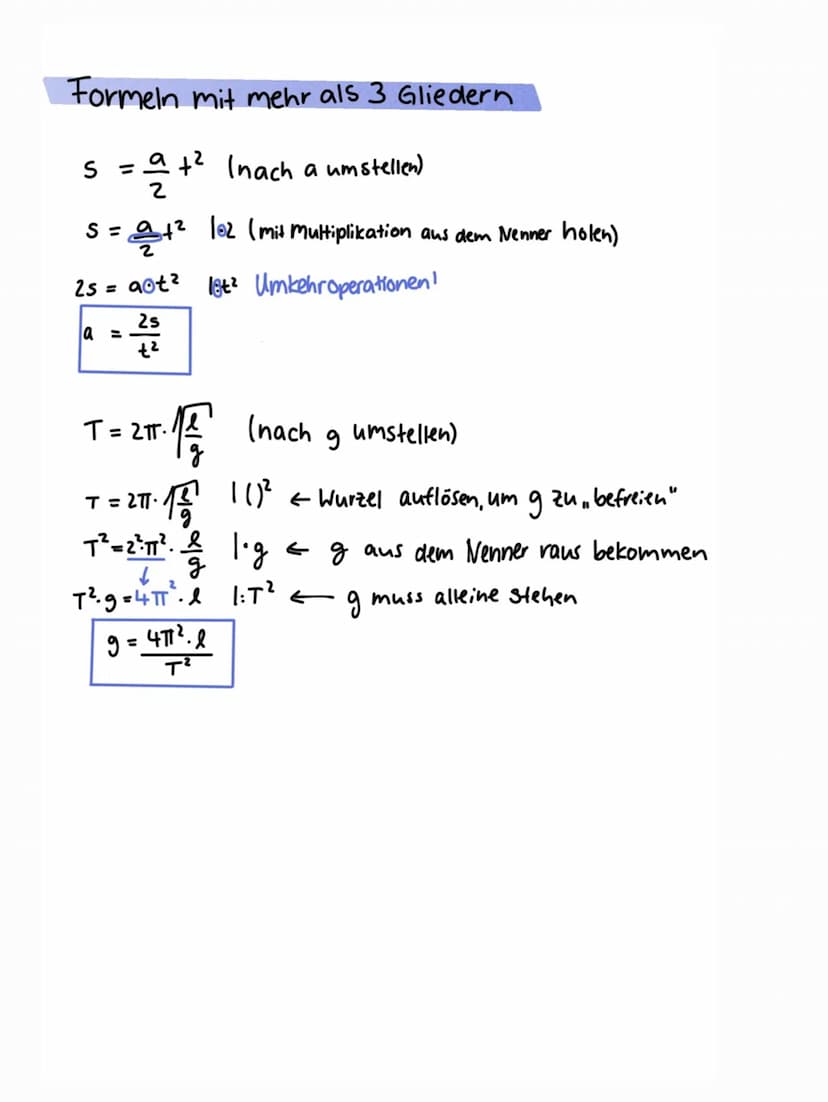 Formeln mit mehr als 3 Gliedern
s = a/2 t² (nach a umstellen)
s = a/2 t² |·2 (mit Multiplikation aus dem Nenner holen)
2s = a·t² |:t² Umkehroperationen!
a = 2s/t²
T = 2π·√(l/g) (nach g umstellen)
T = 2π·√(l/g) | ()² ← Wurzel auflösen, um g zu „befreien"
T² = 2²·π²· l/g |·g ← g aus dem Nenner raus bekommen
↓
T²·g = 4π²·l |:T² ← g muss alleine stehen
g = 4π²·l/T²